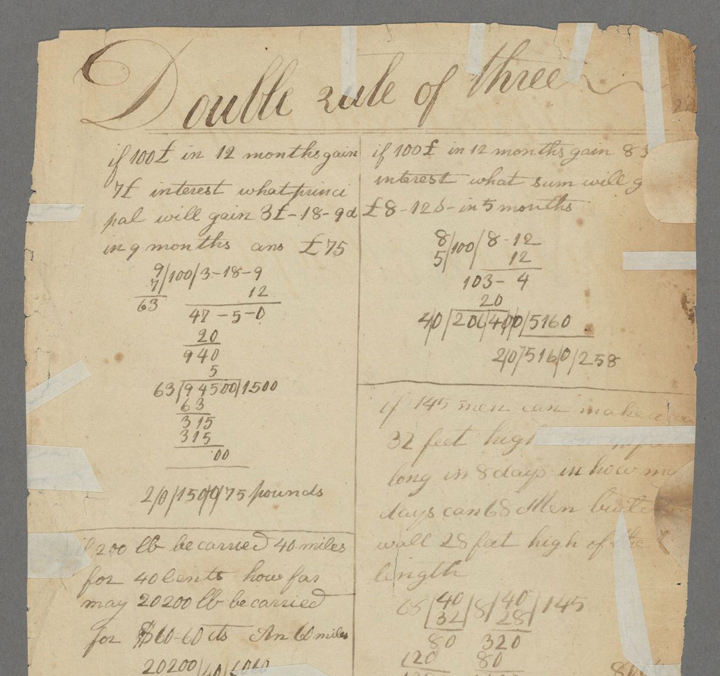 Double rule of three
if 100£ in 12 months gain
7£ interest what princi
pal will gain 3£-18-9d
in 9 months ans £75
9/100/3-18-9
7 12
63 47-5-0
20
940
5
63/94500/1500
63
315
315
00
2/0/150/0/75 pounds
200 lb be carried 40 miles
for 40 Cents how far
may 20200 lb be carried
for $60-60 cts An 60 miles
20200/40/6060
if 100£ in 12 months gain 8
interest what sum will g
£8-12s-in 5 months
8/100/8-12
5 12
103-4
20
40/206400/5160
2/0/516/0/258
if 145 men can make a
32 feet high
long in 8 days in how
days can 68 Men
wall 28 feet high of the
length
68/40/8/40/145
32 28
80 320
120 80